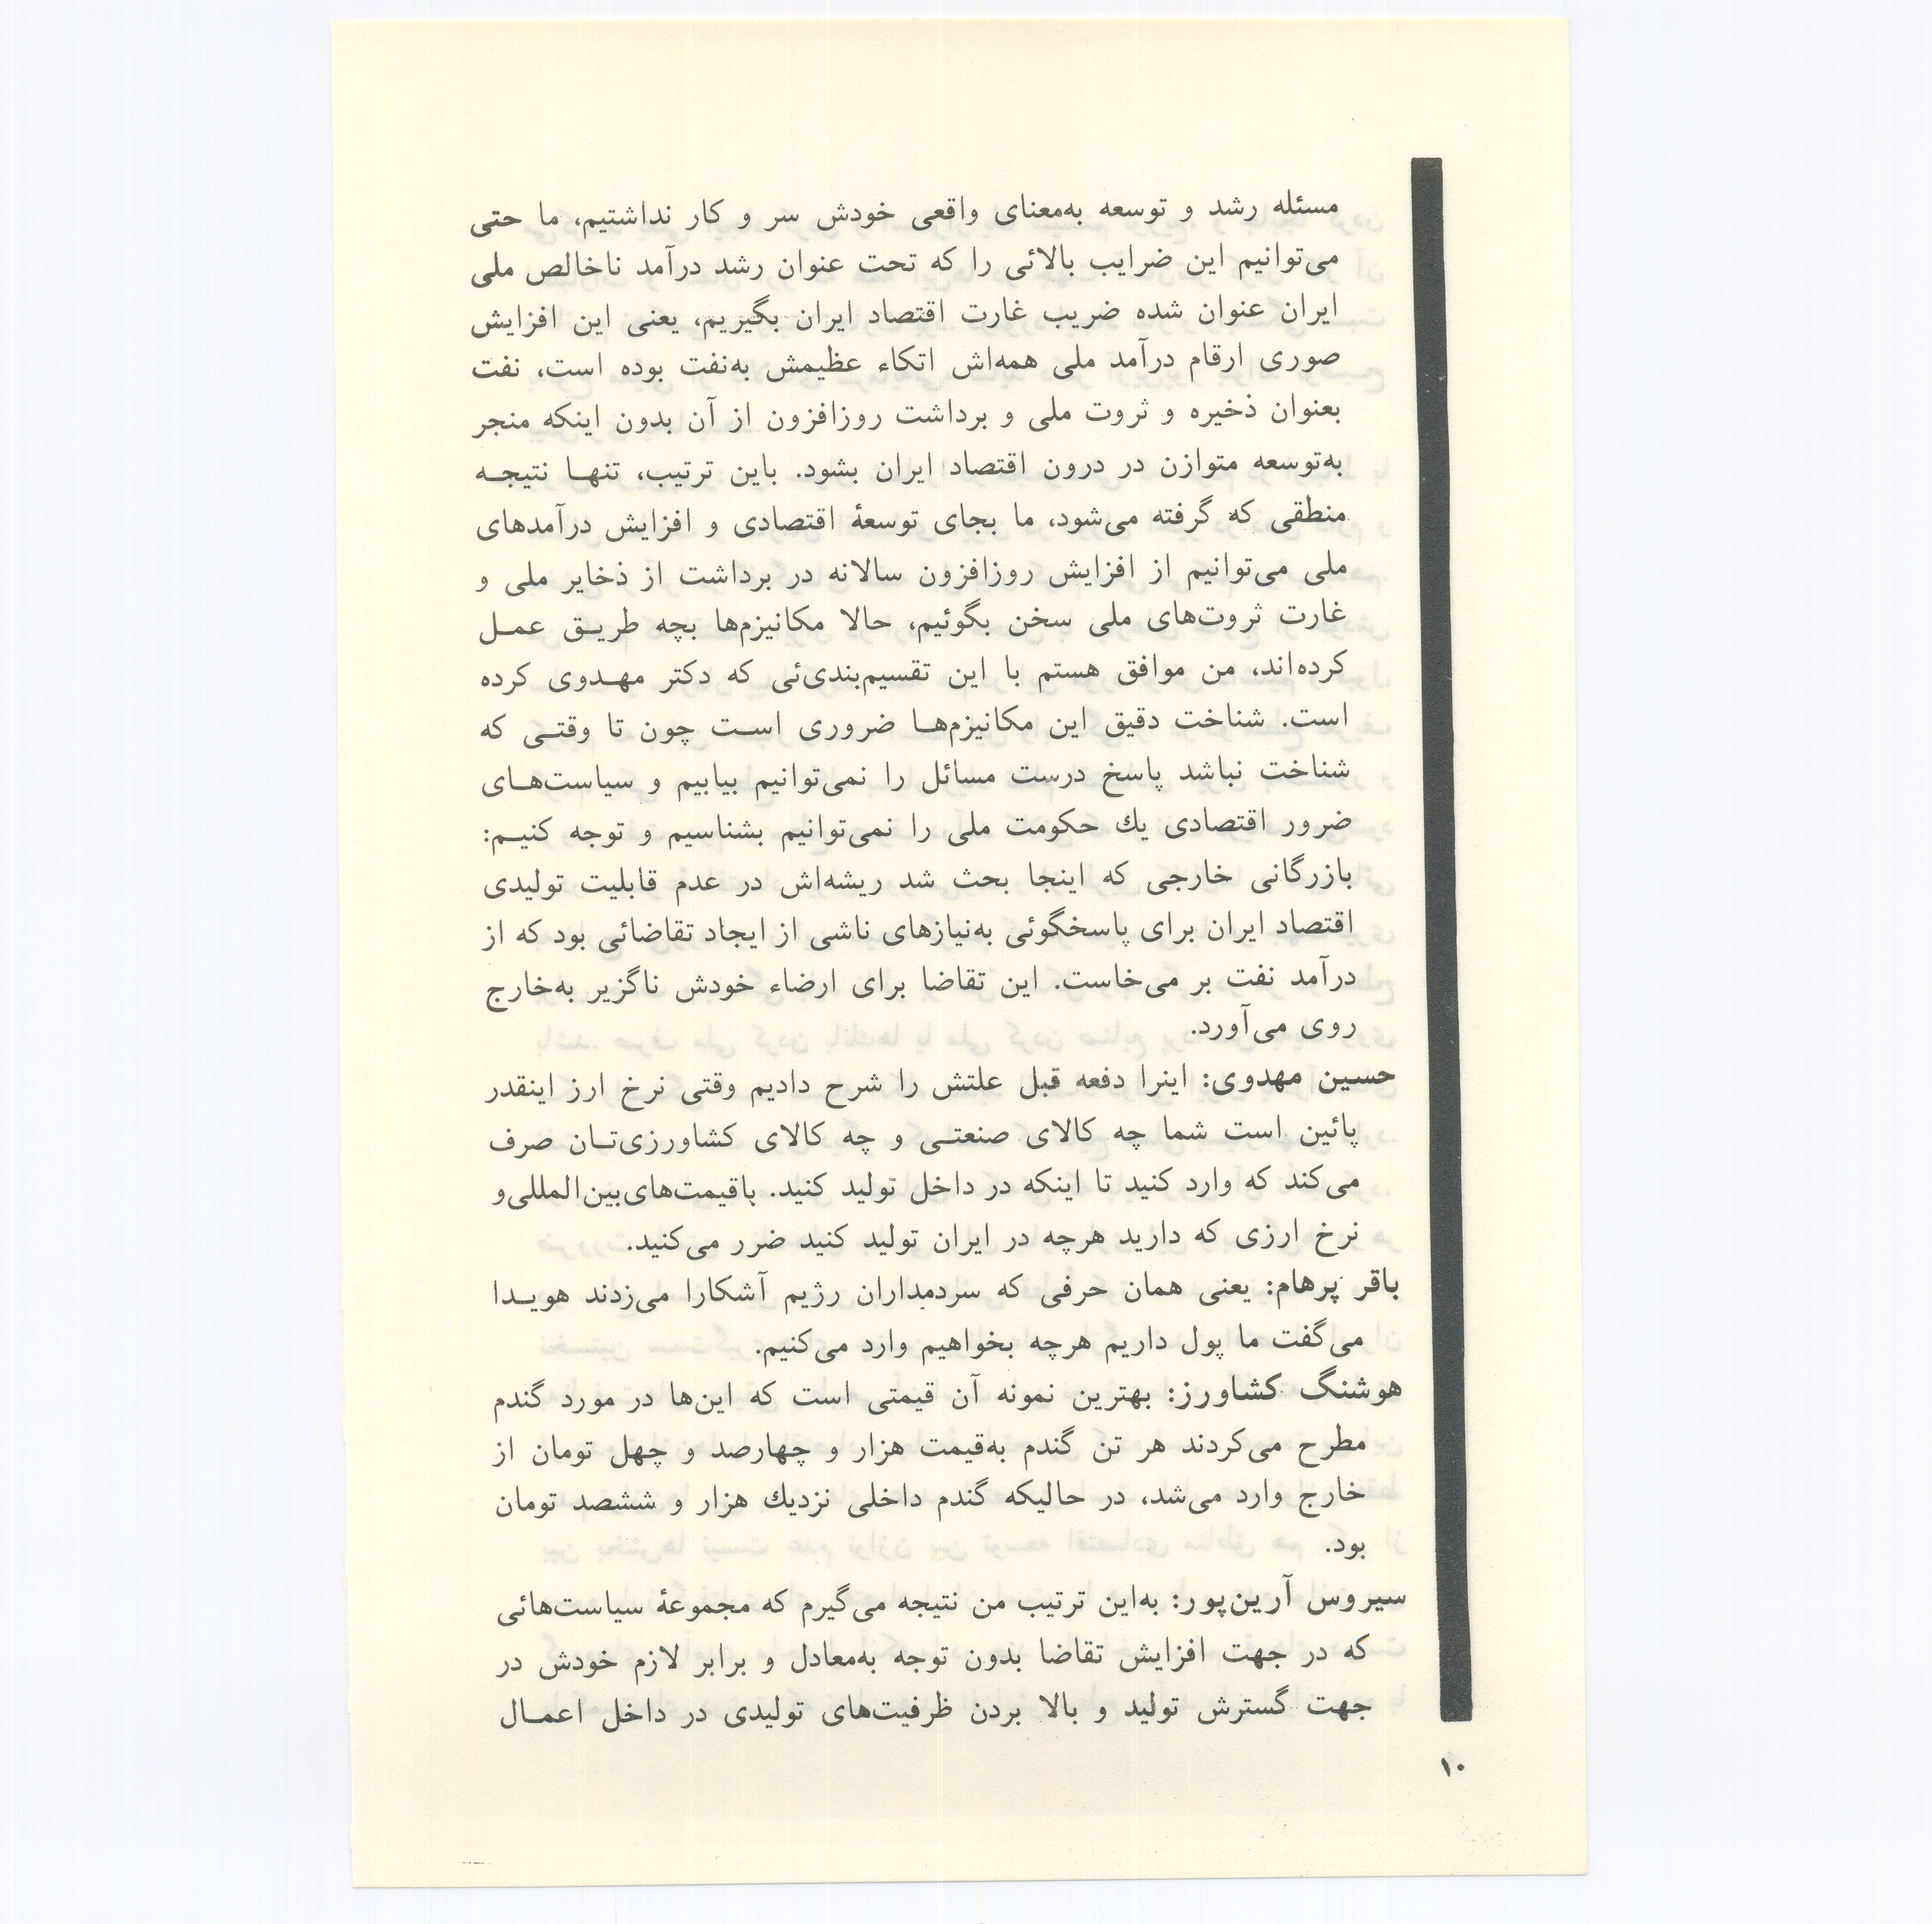 مسئله رشد و توسعه به‌معنای واقعی خودش سر و کار نداشتیم، ما حتی
می‌توانیم این ضرایب بالائی را که تحت عنوان رشد درآمد ناخالص ملی
ایران عنوان شده ضریب غارت اقتصاد ایران بگیریم، یعنی این افزایش
صوری ارقام درآمد ملی همه‌اش اتکاء عظیمش به‌نفت بوده است، نفت
بعنوان ذخیره و ثروت ملی و برداشت روزافزون از آن بدون اینکه منجر
به‌توسعه متوازن در درون اقتصاد ایران بشود. باین ترتیب، تنهـا نتیجـه
منطقی که گرفته می‌شود، ما بجای توسعهٔ اقتصادی و افزایش درآمدهای
ملی می‌توانیم از افزایش روزافزون سالانه در برداشت از ذخایر ملی و
غارت ثروت‌های ملی سخن بگوئیم، حالا مکانیزم‌ها بچه طریـق عمـل
کرده‌اند، من موافق هستم با این تقسیم‌بندی‌ئی که دکتر مهـدوی کرده
است. شناخت دقیق این مکانیزم‌هـا ضروری اسـت چون تا وقتـی که
شناخت نباشد پاسخ درست مسائل را نمی‌توانیم بیابیم و سیاست‌هـای
ضرور اقتصادی یك حکومت ملی را نمی‌توانیم بشناسیم و توجه کنیـم:
بازرگانی خارجی که اینجا بحث شد ریشه‌اش در عدم قابلیت تولیدی
اقتصاد ایران برای پاسخگوئی به‌نیازهای ناشی از ایجاد تقاضائی بود که از
درآمد نفت بر می‌خاست. این تقاضا برای ارضاء خودش ناگزیر به‌خارج
روی می‌آورد.
حسین مهدوی: اینرا دفعه قبل علتش را شرح دادیم وقتی نرخ ارز اینقدر
پائین است شما چه کالای صنعتـی و چه کالای کشاورزی‌تـان صرف
می‌کند که وارد کنید تا اینکه در داخل تولید کنید. باقیمت‌های‌بین‌المللی‌و
نرخ ارزی که دارید هرچه در ایران تولید کنید ضرر می‌کنید.
باقر پرهام: یعنی همان حرفی که سردمداران رژیم آشکارا می‌زدند هویـدا
می‌گفت ما پول داریم هرچه بخواهیم وارد می‌کنیم.
هوشنگ کشاورز: بهترین نمونه آن قیمتی است که این‌ها در مورد گندم
مطرح می‌کردند هر تن گندم به‌قیمت هزار و چهارصد و چهل تومان از
خارج وارد می‌شد، در حالیکه گندم داخلی نزدیك هزار و ششصد تومان
بود.
سیروس آرین‌پور: به‌این ترتیب من نتیجه می‌گیرم که مجموعهٔ سیاست‌هائی
که در جهت افزایش تقاضا بدون توجه به‌معادل و برابر لازم خودش در
جهت گسترش تولید و بالا بردن ظرفیت‌های تولیدی در داخل اعمـال
۱۰